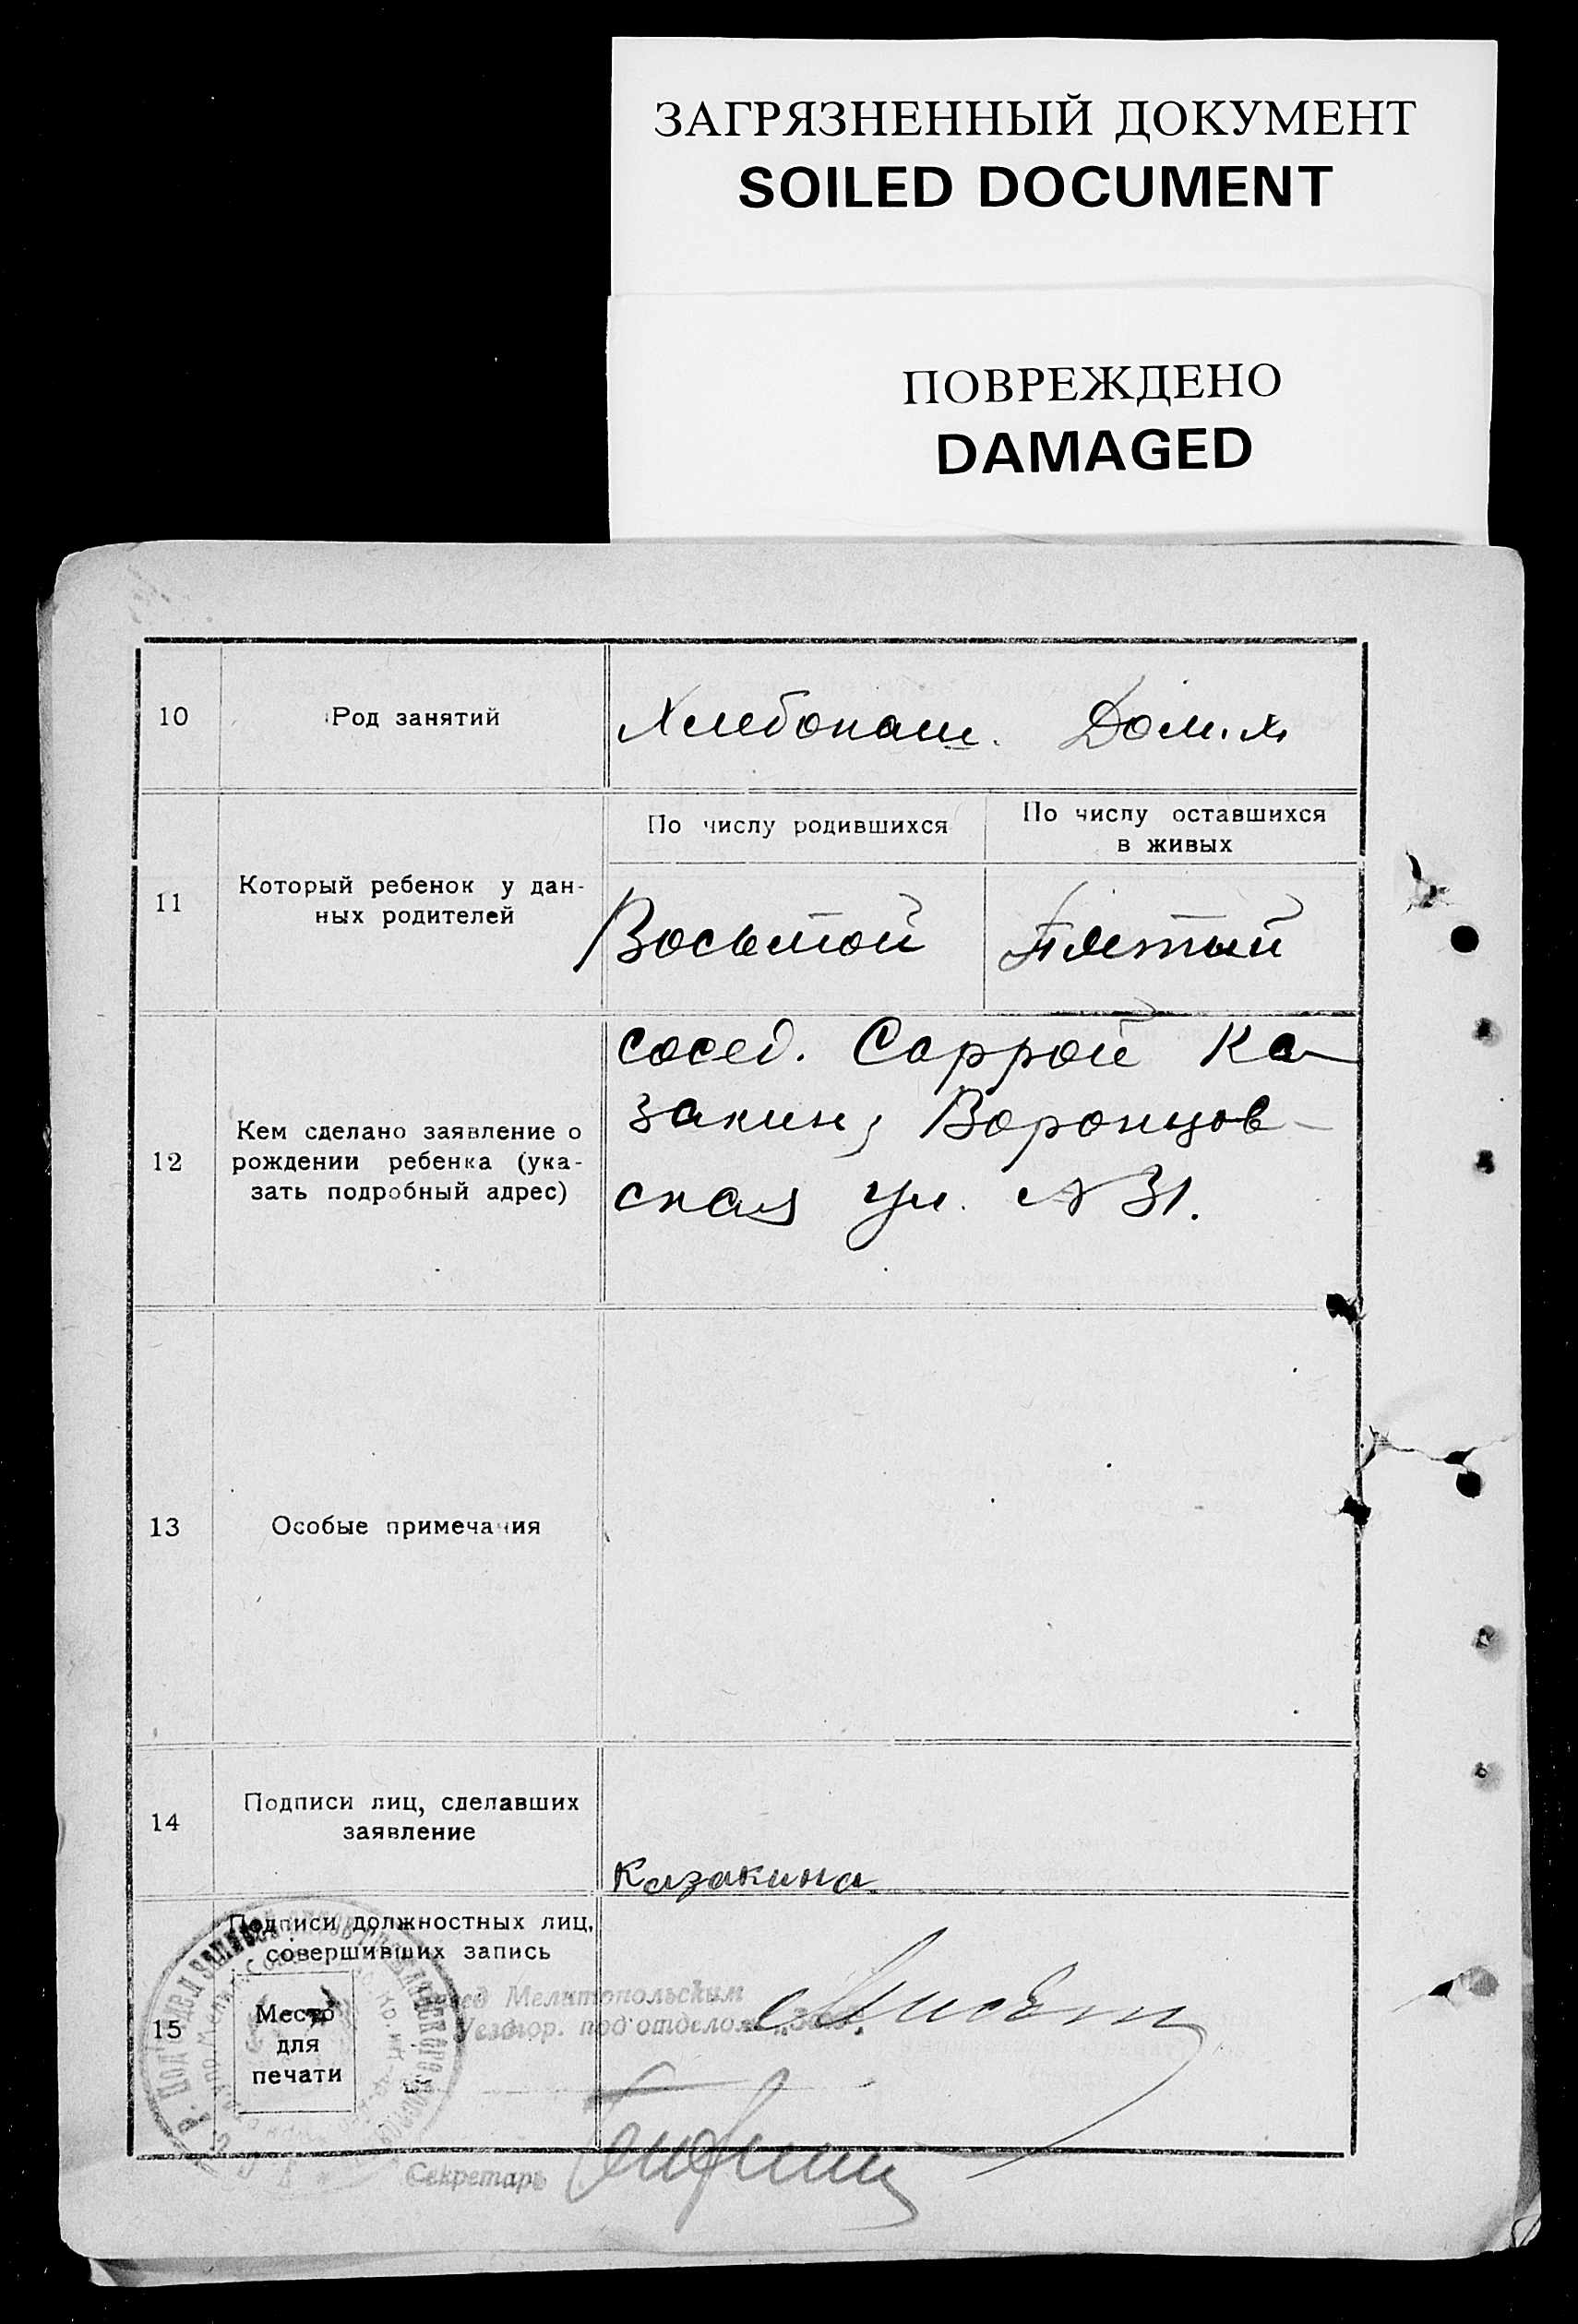 ЗАГРЯЗНЕННЫЙ ДОКУМЕНТ
SOILED DOCUMENT
ПОВРЕЖДЕНО
DAMAGED
10 Род занятий Хлебопаш. Дом. х.
11 Который ребенок у дан-
ных родителей
По числу родившихся
По числу оставшихся
в живых
Восьмой Пятый
12 Кем сделано заявление о
рождении ребенка (ука-
зать подробный адрес)
сосед. Саррой Ка-
закин, Воронцов-
ская ул. № 31.
13 Особые примечания
14 Подписи лиц, сделавших
заявление
Казакина
15 Подписи должностных лиц,
совершивших запись
Место
для
печати
Мелитопольским
подотделом
Секретарь